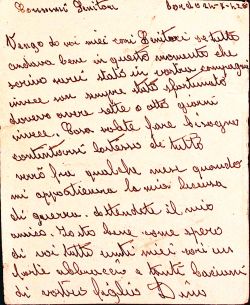 Vengo da voi miei cari Genitori se tutto
andava bene in questo momento che
scrivo sarei stato in vostra compagnia
invece son sempre stato sfortunato
dovevo avere sette o otto giorni
invece Cosa volete fare bisogno
contentarsi di tutto
verrà fra qualche mese quando
mi appartienera la mia licenza
di guerra. attendete il mio
arrivo. Io sto bene come spero
di voi tutti uniti miei cari un
forte abbraccio e tanti bacioni
di vostro figlio